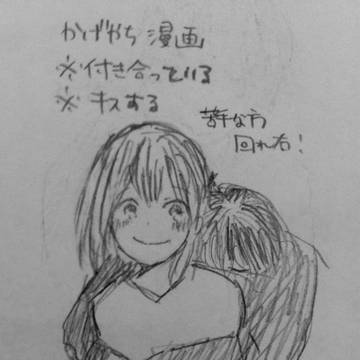 かげやち漫画
※付き合っている
※キスする
苦手な方
回れ右!